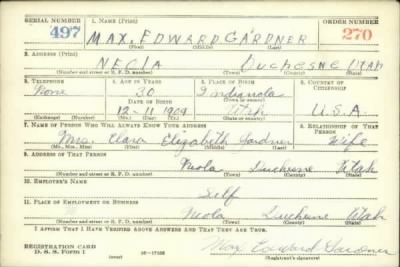 SERIAL NUMBER 1. NAME (Print) ORDER NUMBER
497 MAX. EDWARD GARDNER 270
(First) (Middle) (Last)
2. ADDRESS (Print)
NEOLA DUCHESNE UTAH
(Number and street or R. F. D. number) (Town) (County) (State)
3. TELEPHONE 4. AGE IN YEARS 5. PLACE OF BIRTH 6. COUNTRY OF CITIZENSHIP
None 30 Indianola
DATE OF BIRTH
12-11-1909 Utah U.S.A.
(Exchange) (Number) (Mo.) (Day) (Yr.) (State or country)
7. NAME OF PERSON WHO WILL ALWAYS KNOW YOUR ADDRESS 8. RELATIONSHIP OF THAT PERSON
Mrs. Clara Elizabeth Gardner Wife
(Mr., Mrs., Miss) (First) (Middle) (Last)
9. ADDRESS OF THAT PERSON
Neola Duchesne Utah
(Number and street or R. F. D. number) (Town) (County) (State)
10. EMPLOYER'S NAME
Self
11. PLACE OF EMPLOYMENT OR BUSINESS
Neola Duchesne Utah
(Number and street or R. F. D. number) (Town) (County) (State)
I AFFIRM THAT I HAVE VERIFIED ABOVE ANSWERS AND THAT THEY ARE TRUE.
REGISTRATION CARD
D. S. S. Form 1 (over) Max Edward Gardner
(Registrant's signature)